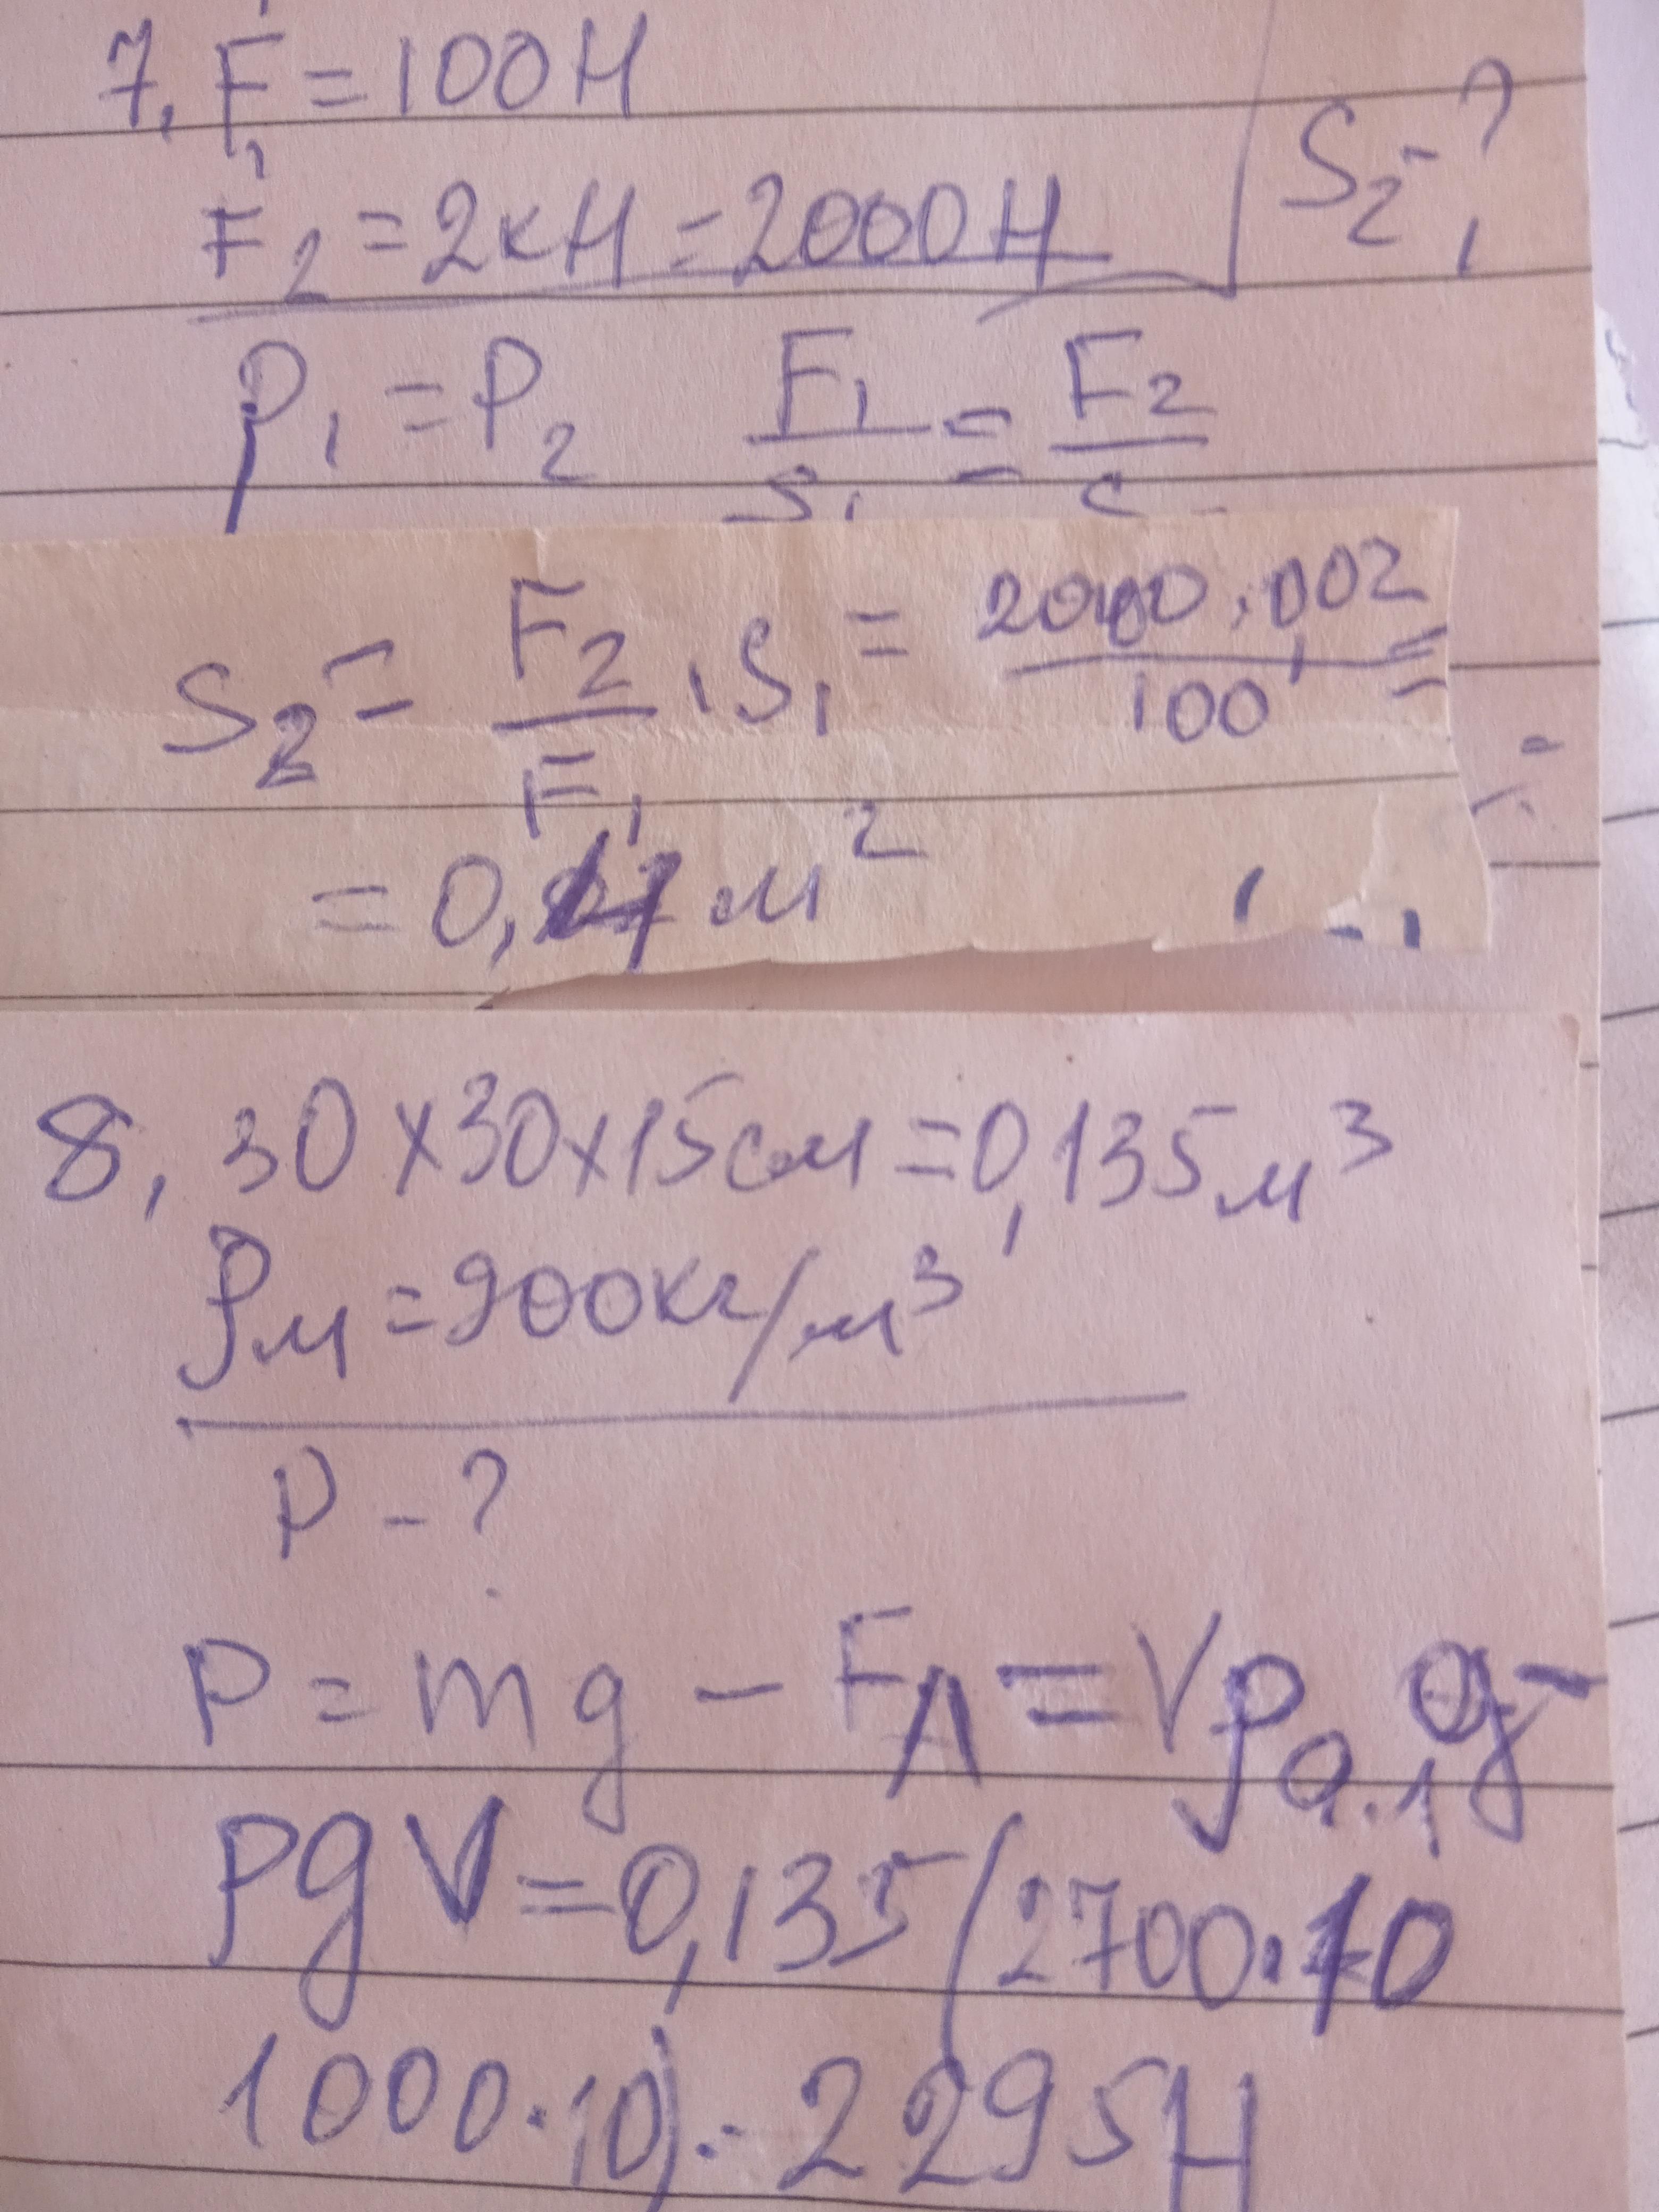 7. F₁ = 100 Н
F₂ = 2 кН = 2000 Н
S₂ - ?
P₁ = P₂ F₁/S₁ = F₂/S
S₂ = F₂/F₁ · S₁ = 2000 · 0,002/100 =
= 0, м²
8, 30 × 30 × 15 см = 0,135 м³
ρм = 900 кг/м³
P - ?
P = mg - FA = Vρ g -
ρgV = 0,135 (2700 · 10
1000 · 10) = 2295 Н